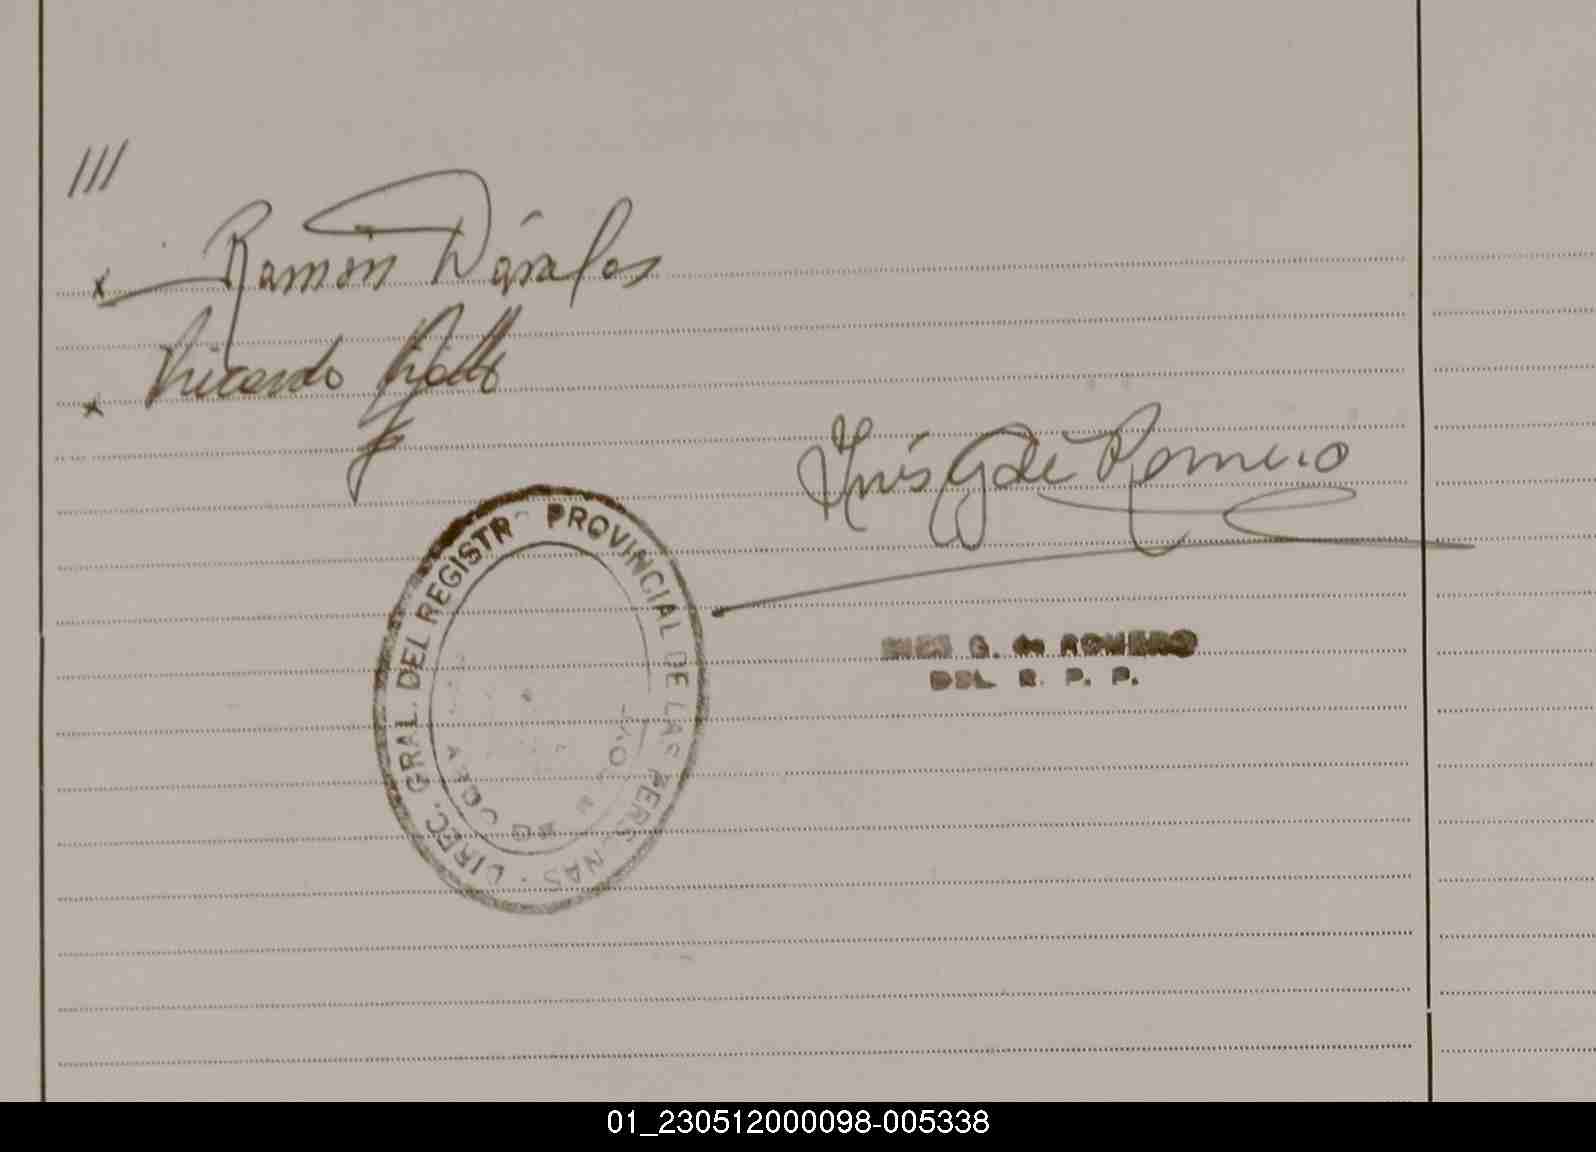 ///
x Ramón Dávalos
x Ricardo
Inés G de Romero
DIREC. GRAL. DEL REGISTR PROVINCIAL DE LAS PERS NAS
INES G. de ROMERO
DEL. R. P. P.
01_230512000098-005338